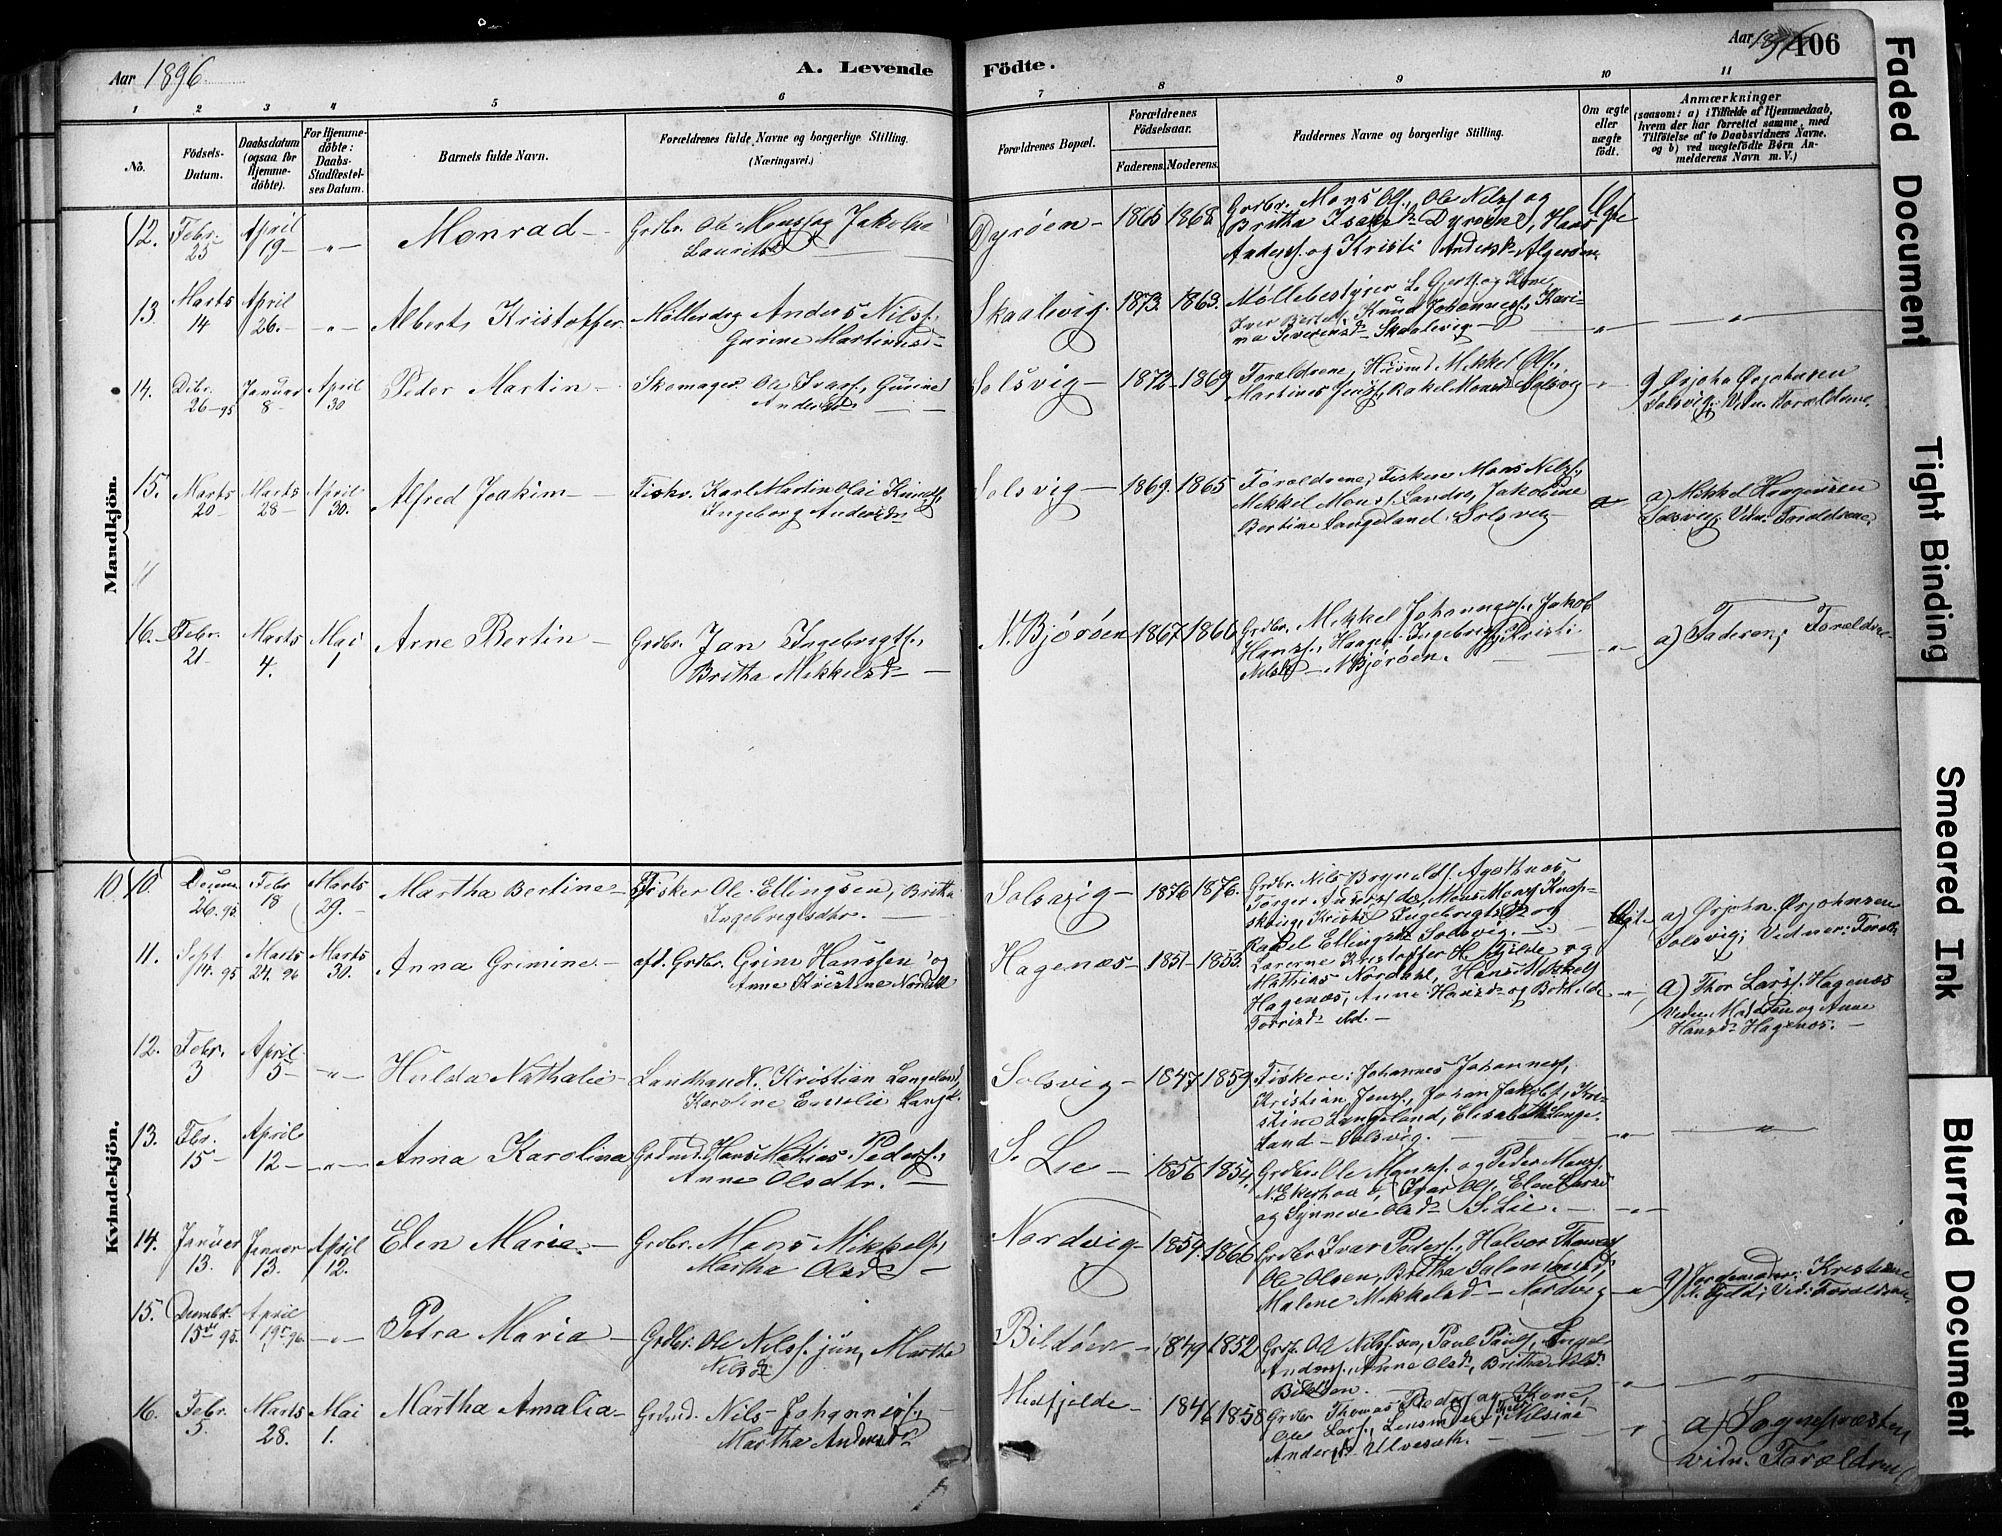 Aar 1896
A. Levende Födte.
Aar 1896
106
1 2 3 4 5 6 7 8 9 10 11
No.
Födsels-Datum.
Daabsdatum (ogsaa for Hjemme-döbte).
For Hjemme-döbte: Daabs-Stadfæstel-ses Datum.
Barnets fulde Navn.
Forældrenes fulde Navne og borgerlige Stilling.
(Næringsvei.)
Forældrenes Bopæl.
Forældrenes Födselsaar.
Faderens. Moderens.
Faddernes Navne og borgerlige Stilling.
Om ægte eller uægte födt.
Anmærkninger
(saasom: a) i Tilfælde af Hjemmedaab, hvem der har forrettet samme, med Tilföielse af to Daabsvidners Navne, og b) ved uægtefödte Börn Anmelderens Navn m. V.)
Mandkjön.
12. Febr. 25 April 19 - " - Monrad - Grdbr. Ole Monss. og Jakobe
Lauritsd.
Dyrøen - 1865 1868 Gordbr. Mons Ols., Ole Nilss. og
Britha Isaksd. Dyrøen, Hans
Anderss. og Kristi Andersd. Algerøen
Ægte
13 Marts 14 April 26. - " - Alberts Kristoffer Møllerdrg. Anders Nilss.,
Gurine Martinusd.
Skaalvig. 1873. 1863. Møllebestyrer L. Gjerts. og Kone,
Iver Berts., Knud Johanness., Kari-
na Severinsd. Skaalvig - "
"
14. Decbr. 26 - 95 Januar 8 - April 30 Peder Martin - Skomager Ole Ivars., Gurine
Andersd.
Solsvig - 1872 - 1869 Forældrene, Husmd. Mikkel Ols.,
Martines Jens., Rakel Monsd. Solsvig
a) Ørjohn Ørjohnsen
Solsvig; Vidn. Forældrene.
15. Marts 20 Marts 28 - April 30. Alfred Joakim - Fiskr. Karl Martin Olai Knuds.,
Ingeborg Andersdr.
Solsvig - 1869. 1865 Forældrene, Fiskere Mons Nilss.,
Mikkel Monss. Landro, Jakobine
Bertine Langeland. Solsvig
a) Mikkel Haagensen
Solsvig; Vidn. Forældrene,
16. - Febr. 21 - Marts 4. Mai 1 Arne Bertin - Grdbr. Jan Ingebrigts.,
Britha Mikkelsd. -
N. Bjørøen 1867. 1866 Grdbr. Mikkel Johanness., Jakob
Hanss., Haagen Ingebrigts., Kristi
Nilsd. - N. Bjørøen.
- " -
a) Faderen; Forældrene
Kvindekjön.
10 10. Decemb. 26. 95. Febr. 18 Marts 29. - Martha Bertine - Fisker Ole Ellingsen, Britha
Ingebrigtsdtr.
Solsvig - 1876 1876. Grdbr. Nils Bognulds. Agotnes
Torger Anders.,
Kristi Ingebrigtsd. og
Rakel Ellingsd. Solsvig.
Ægte
a) Ørjohn Ørjohnsen
Solsvig; Vidner: Forældr.
11. Sept. 14. 95 Marts 24. 96 Marts 30. Anna Grimine - afd. Grdbr. Grim Hanssen og
Anne Kristine Nordahl
Hagenæs - 1851 - 1853. Lærerne Kristoffer H. Fjelde og
Mathias Nordahl, Hans Mikkels.
Hagenæs, Anne Hansd. og Bothilde
- " -
a) Thor Larss. Hagenæs
Vidn. Moderen og Anne
Hansd. Hagenæs. -
12. Febr. 3 April 5 - - " - Hulda Nathalie - Landhandl. Kristian Langeland,
Karoline Emilie Langd.
Solsvig - 1847. 1859. Fiskere: Johannes Johanness.,
Kristian Jens., Johan Jakobs., Kri-
stine Langeland, Elisabeth Lange-
land - Solsvig.
- " -
"
13. Fbr. 15 - April 12 - - " - Anna Karolina Grdmd. Hans Mathias Peders.,
Anne Olsdtr. -
S. Lie - 1856 1854, Grdbr. Ole Monss. og Peder Monss.
N. Ekerhovd, Ivar Ols., Elen Larsd.
og Synneve Olsd. S. Lie. -
- " -
14. Januar 13. Januar 13. April 12. Elen Marie. - Grdbr. Mons Mikkels.,
Martha Olsd. -
Nordvig - 1859. 1866 Grdbr. Ivar Peders., Halvor Thomass.
Ole Olsen, Britha Salomonsd.,
Malene Mikkelsd. - Nordvig
- " -
a) Jordemoder Kristiane
Fjeld; Vid: Forældrene.
15. Decembr. 15de 95. April 19de 96 - " - Petra Maria - Grdbr. Ole Nilss. jun, Martha
Nilsd.
Bildøen - 1849 1852 Grdb. Ole Nilssen, Paul Pauls., Engel
Anderss., Anne Olsd., Britha Nilsd.
Bildøen. -
"
16. Febr. 5. Marts 28. Mai 1. Martha Amalia - Grdmd. Nils Johanness.,
Martha Andersd.
Midtfjelde - 1846 1858 Grdbr Thomas Peders. og Kone,
Ole Larss., Nilsine
Andersd. Ulvesæth. -
"
a) Sognepræsten
Vidn. Forældrene
Faded Document
Tight Binding
Smeared Ink
Blurred Document